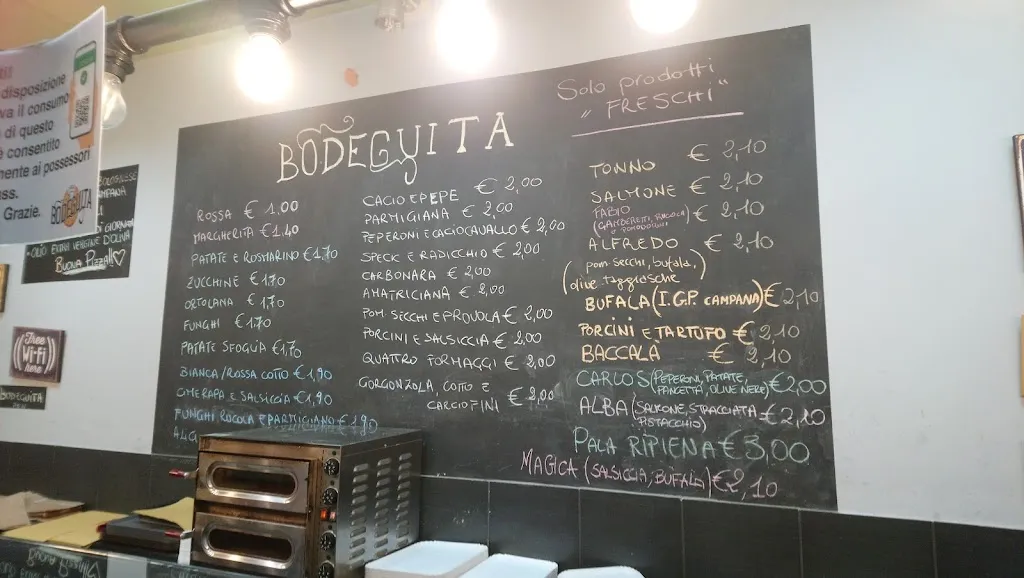 disposizione
va il consumo
di questo
è consentito
mente ai possessori
ss.
Grazie.
BODEGUITA
BOLOGNESE
CAMPANA
OLIO EXTRA VERGINE D'OLIVA
BUONA PIZZA!!
Free
Wi-Fi
here
BODEGUITA
BODEGUITA
ROSSA € 1,00
MARGHERITA € 1.40
PATATE E ROSMARINO € 1.70
ZUCCHINE € 1.70
ORTOLANA € 1,70
FUNGHI € 1.70
PATATE SFOGLIA € 1.70
BIANCA/ROSSA COTTO € 1,90
CIMERAPA E SALSICCIA € 1,90
FUNGHI RUCOLA E PARMIGIANO € 1.90
ALIC
CACIO E PEPE € 2,00
PARMIGIANA € 2,00
PEPERONI E CACIOCAVALLO € 2,00
SPECK E RADICCHIO € 2,00
CARBONARA € 2,00
AMATRICIANA € 2,00
POM. SECCHI E PROVOLA € 2,00
PORCINI E SALSICCIA € 2,00
QUATTRO FORMAGGI € 2,00
GORGONZOLA, COTTO E
CARCIOFINI € 2,00
Solo prodotti
"FRESCHI"
TONNO € 2,10
SALMONE € 2,10
FABIO € 2,10
(GAMBERETTI, RUCOLA
E POMODORINI)
ALFREDO € 2,10
(pom. secchi, bufala,
olive taggiasche)
BUFALA (I.G.P. CAMPANA) € 2,10
PORCINI E TARTUFO € 2,10
BACCALA € 2,10
CARLOS (PEPERONI, PATATE, € 2,00
PANCETTA, OLIVE NERE)
ALBA (SALMONE, STRACCIATA € 2,10
PISTACCHIO)
PALA RIPIENA € 3,00
MAGICA (SALSICCIA, BUFALA) € 2,10